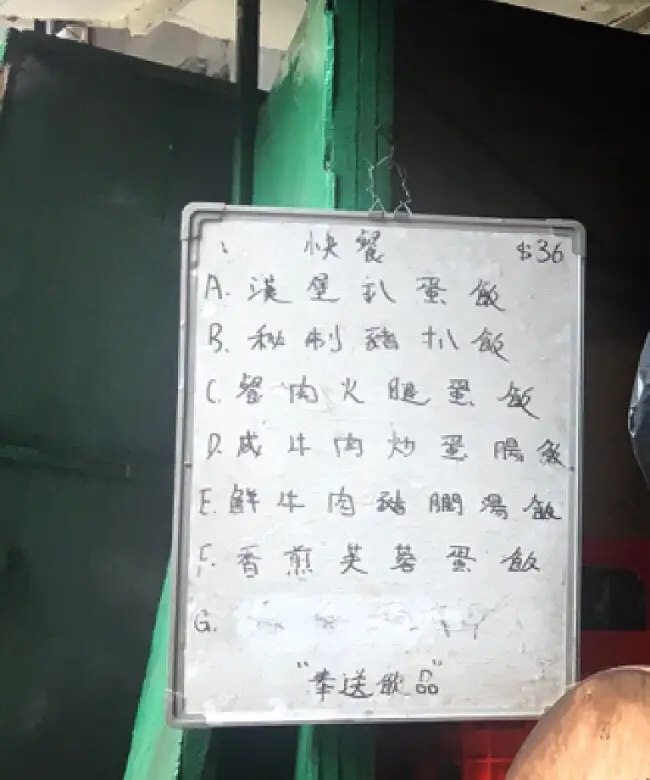 快餐 $36
A. 漢堡扒蛋飯
B. 秘制豬扒飯
C. 餐肉火腿蛋飯
D. 咸牛肉炒蛋腸飯
E. 鮮牛肉豬膶湯飯
F. 香煎芙蓉蛋飯
G.
"奉送飲品"